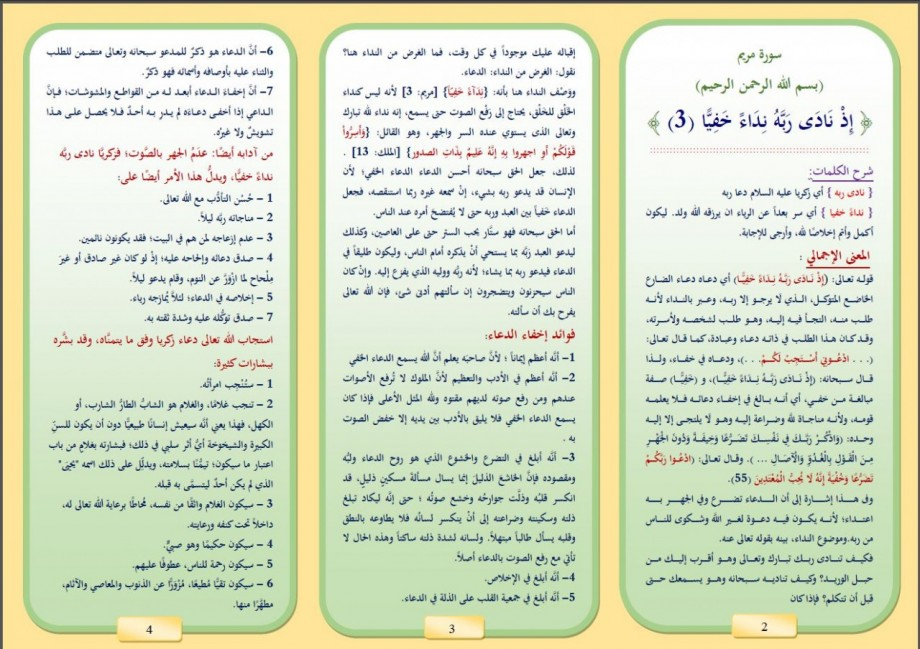 سورة مريم
(بسم الله الرحمن الرحيم)
﴿ إِذْ نَادَى رَبَّهُ نِدَاءً خَفِيًّا (3) ﴾
شرح الكلمات:
{ نادى ربه } أي زكريا عليه السلام دعا ربه
{ نداءً خفيا } أي سر بعداً عن الرياء ان يرزقه الله ولد. ليكون
أكمل وأتم إخلاصًا لله، وأرجى للإجابة.
المعنى الإجمالي :
قوله تعالى: (إِذْ نَادَى رَبَّهُ نِدَاءً خَفِيًّا) أي دعاه دعاء الضارع
الخاضع المتوكل، الذي لا يرجو إلا ربه، وعبر بالنداء لأنه
طلب منه، التجأ فيه إليه، وهو طلب لشخصه ولأسرته،
وقد كان هذا الطلب في ذاته دعاء وعبادة، كما قال تعالى:
(... ادْعُونِي أَسْتَجِبْ لَكُمْ. ..)، ودعاه في خفاء، ولذا
قال سبحانه: (إِذْ نَادَى رَبَّهُ نِدَاءً خَفِيًّا)، و (خَفِيًّا) صفة
مبالغة من خفي، أي أنه بالغ في إخفاء دعائه فلا يعلمه
قومه، ولأنه مناجاة لله وضراعة إليه وهو لا يلتجئ إلا إليه
وحده: (وَاذْكُرْ رَبَّكَ فِي نَفْسِكَ تَضَرُّعًا وَخِيفَةً وَدُونَ الْجَهْرِ
مِنَ الْقَوْلِ بِالْغُدُوِّ وَالْآصَالِ ... ). وقال تعالى: (ادْعُوا رَبَّكُمْ
تَضَرُّعًا وَخُفْيَةً إِنَّهُ لَا يُحِبُّ الْمُعْتَدِينَ (55).
وف هذا إشارة إلى أن الدعاء تضرع وفي الجهر به
اعتداء؛ لأنه يكون فيه دعوة لغير الله وشكوى للناس
من ربه.وموضوع النداء، بينه بقوله تعالى عنه.
فكيف تنادى ربك تبارك وتعالى وهو أقرب إليك من
حبل الوريد؟ وكيف تناديه سبحانه وهو يسمعك حتى
قبل أن تتكلم؟ فإذا كان
2
إقباله عليك موجوداً في كل وقت، فما الغرض من النداء هنا؟
نقول: الغرض من النداء: الدعاء.
ووَصْف النداء هنا بأنه: {نِدَآءً خَفِيّاً} [مريم: 3] لأنه ليس كنداء
الخَلْق للخَلْق، يحتاج إلى رَفْع الصوت حتى يسمع، إنه نداء لله تبارك
وتعالى الذي يستوي عنده السر والجهر، وهو القائل: {وَأَسِرُّواْ
قَوْلَكُمْ أَوِ اجهروا بِهِ إِنَّهُ عَلِيمٌ بِذَاتِ الصدور} [الملك: 13] .
لذلك، جعل الحق سبحانه أحسن الدعاء الدعاء الخفي؛ لأن
الإنسان قد يدعو ربه بشيء، إنْ سمعه غيره ربما استنقصه، فجعل
الدعاء خفياً بين العبد وربه حتى لا يُفتضحَ أمره عند الناس.
أما الحق سبحانه فهو ستَّار يحب الستر حتى على العاصين، وكذلك
ليدعو العبد رَبَّه بما يستحي أنْ يذكره أمام الناس، وليكون طليقاً في
الدعاء فيدعو ربه بما يشاء؛ لأنه ربُّه ووليه الذي يفزع إليه. وإنْ كان
الناس سيحزنون ويتضجرون إن سألتهم أدنى شيء، فإن الله تعالى
يفرح بك أن سألته.
فوائد إخفاء الدعاء:
1- أنَّه أعظم إيماناً ؛ لأنَّ صاحبَه يعلم أنَّ الله يسمع الدعاء الخفي
2- أنَّه أعظم في الأدب والتعظيم لأنَّ الملوك لا تُرفع الأصوات
عندهم ومن رفع صوته لديهم مقتوه ولله المثل الأعلى فإذا كان
يسمع الدعاء الخفي فلا يليق بالأدب بين يديه إلا خفض الصوت
به .
3- أنَّه أبلغ في التضرع والخشوع الذي هو روح الدعاء ولبُّه
ومقصوده فإنَّ الخاشعَ الذليلَ إنَّما يسال مسألة مسكينٍ ذليلٍ، قد
انكسر قلبُه وذلَّت جوارحُه وخشع صوتُه ؛ حتى إنَّه ليكاد تبلغ
ذلته وسكينته وضراعته إلى أنْ ينكسر لسانُه فلا يطاوعه بالنطق
وقلبه يسأل طالباً مبتهلاً. ولسانه لشدة ذلته ساكتاً وهذه الحال لا
تأتي مع رفع الصوت بالدعاء أصلاً.
4- أنَّه أبلغ في الإخلاص.
5- أنَّه أبلغ في جمعية القلب على الذلة في الدعاء.
3
6- أنَّ الدعاء هو ذكرٌ للمدعو سبحانه وتعالى متضمن للطلب
والثناء عليه بأوصافه وأسمائه فهو ذكرٌ.
7- أنَّ إخفاءَ الدعاء أبعد له من القواطع والمشوشات؛ فإنَّ
الداعي إذا أخفى دعاءَه لم يدرِ به أحدٌ فلا يحصل على هذا
تشويشٌ ولا غيرُه.
من آدابه أيضًا: عدَمُ الجهر بالصَّوت؛ فزكريَّا نادى ربَّه
نداءً خفيًّا، ويدلُّ هذا الأمر أيضًا على:
1 - حُسْن التأدُّب مع الله تعالى.
2 - مناجاته ربَّه ليلاً.
3 - عدم إزعاجه لمن هم في البيت؛ فقد يكونون نائمين.
4 - صدق دعائه وإلحاحه عليه؛ إذْ لو كان غير صادق أو غيرَ
مِلْحاح لما ازْوَرَّ عن النوم، وقام يدعو ليلاً.
5 - إخلاصه في الدعاء؛ لئلاَّ يُمازِجه رياء.
7 - صدق توكُّله عليه وشدة ثقته به.
استجاب الله تعالى دعاء زكريا وفق ما يتمناَّه، وقد بشَّره
ببشارات كثيرة:
1 - ستُنْجِب امرأتُه.
2 - تنجب غلامًا، والغلام هو الشابُّ الطارُّ الشارب، أو
الكهل، فهذا يعني أنَّه سيعيش إنسانًا طبيعيًّا دون أن يكون للسنِّ
الكبيرة والشيخوخة أيُّ أثر سلبي في ذلك؛ فبشارته بغلامٍ من باب
اعتبار ما سيكون؛ تيمُّنًا بسلامته، ويدلِّل على ذلك اسمه "يحيى"
الذي لم يكن أحدٌ ليتسمَّى به قبله.
3 - سيكون الغلام واثقًا من نفسه، مُحاطًا برعاية الله تعالى له،
داخلاً تحت كنفه ورعايته.
4 - سيكون حكيمًا وهو صبِيٌّ.
5 - سيكون رحمة للناس، عطوفًا عليهم.
6 - سيكون تقيًّا مُطيعًا، مُزْوَرًّا عن الذنوب والمعاصي والآثام،
مطهَّرًا منها.
4